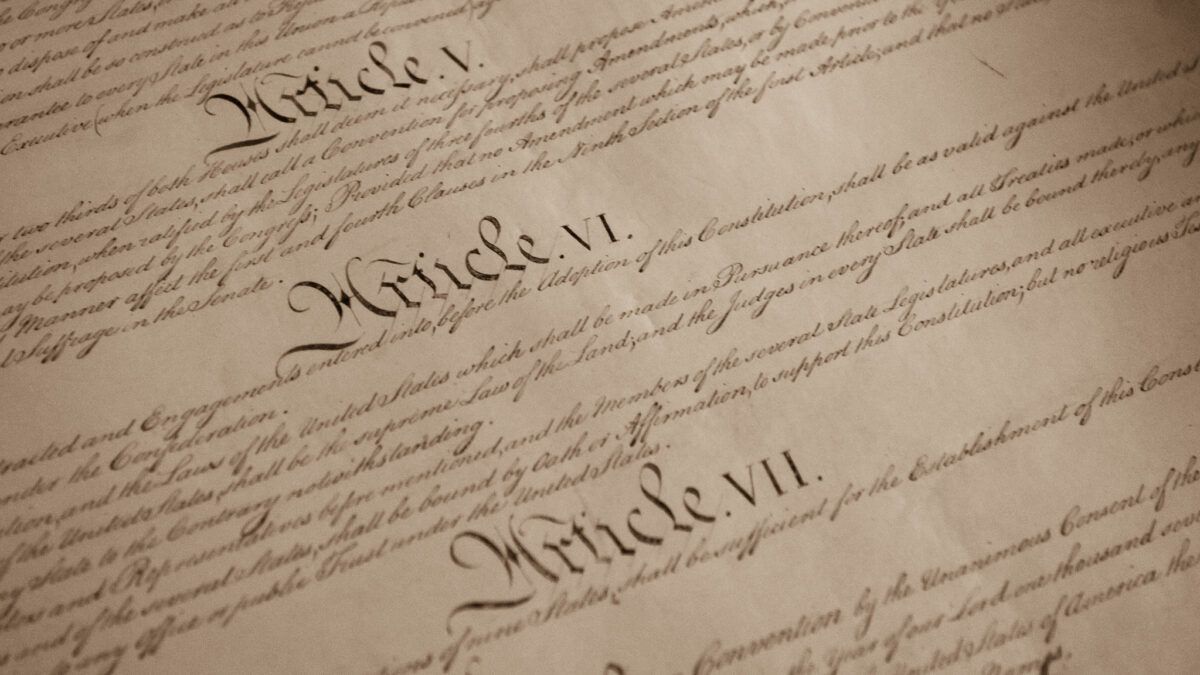 the Congress
or more States,
dispose of and make all
shall be so construed as to
to every State in this Union a
Executive (when the Legislature cannot be convened)
Article. V.
two thirds of both Houses shall deem it necessary, shall propose
the several States, shall call a Convention for proposing Amendments, which,
when ratified by the Legislatures of three fourths of the several States, or by
may be proposed by the Congress; Provided that no Amendment which may be made prior to the
Manner affect the first and fourth Clauses in the Ninth Section of the first Article; and that no
Suffrage in the Senate.
Article. VI.
and Engagements entered into, before the Adoption of this Constitution, shall be as valid against the United
under the Confederation.
and the Laws of the United States which shall be made in Pursuance thereof; and all Treaties made, or
of the United States, shall be the supreme Law of the Land; and the Judges in every State shall be bound thereby, any
State to the Contrary notwithstanding.
and Representatives before mentioned, and the Members of the several State Legislatures, and all executive
and of the several States, shall be bound by Oath or Affirmation, to support this Constitution; but no religious
to any Office or public Trust under the United States.
Article. VII.
of nine States, shall be sufficient for the Establishment of this
Convention by the Unanimous Consent of the
the Year of our Lord one thousand
United States of America the